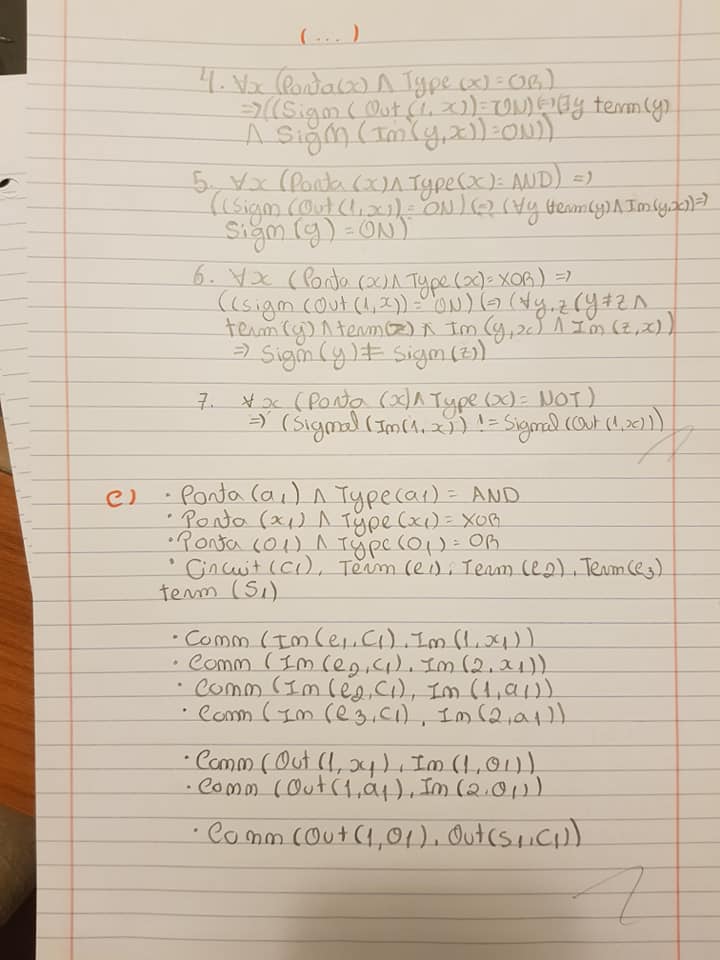 (...)
4. ∀x (Porta(x) ∧ Type(x)=OR)
=> ((Sign(Out(1,x))=ON) <=> (∃y term(y)
∧ Sign(In(y,x))=ON))
5. ∀x (Porta(x) ∧ Type(x)=AND) =>
((Sign(Out(1,x))=ON) <=> (∀y term(y) ∧ In(y,x)) =>
Sign(y)=ON)
6. ∀x (Porta(x) ∧ Type(x)=XOR) =>
((sign(Out(1,x))=ON) <=> (∀y,z (y≠z ∧
term(y) ∧ term(z) ∧ In(y,x) ∧ In(z,x))
=> Sign(y) ≠ Sign(z))
7. ∀x (Porta(x) ∧ Type(x)=NOT)
=> (Signal(In(1,x)) != Signal(Out(1,x)))
c) · Porta(a1) ∧ Type(a1) = AND
· Porta(x1) ∧ Type(x1) = XOR
· Porta(O1) ∧ Type(O1) = OR
· Circuit(C1), Term(e1), Term(e2), Term(e3)
term(S1)
· Conn(In(e1,C1), In(1,x1))
· Conn(In(e2,C1), In(2,x1))
· Conn(In(e2,C1), In(1,a1))
· Conn(In(e3,C1), In(2,a1))
· Conn(Out(1,x1), In(1,O1))
· Conn(Out(1,a1), In(2,O1))
· Conn(Out(1,O1), Out(S1,C1))